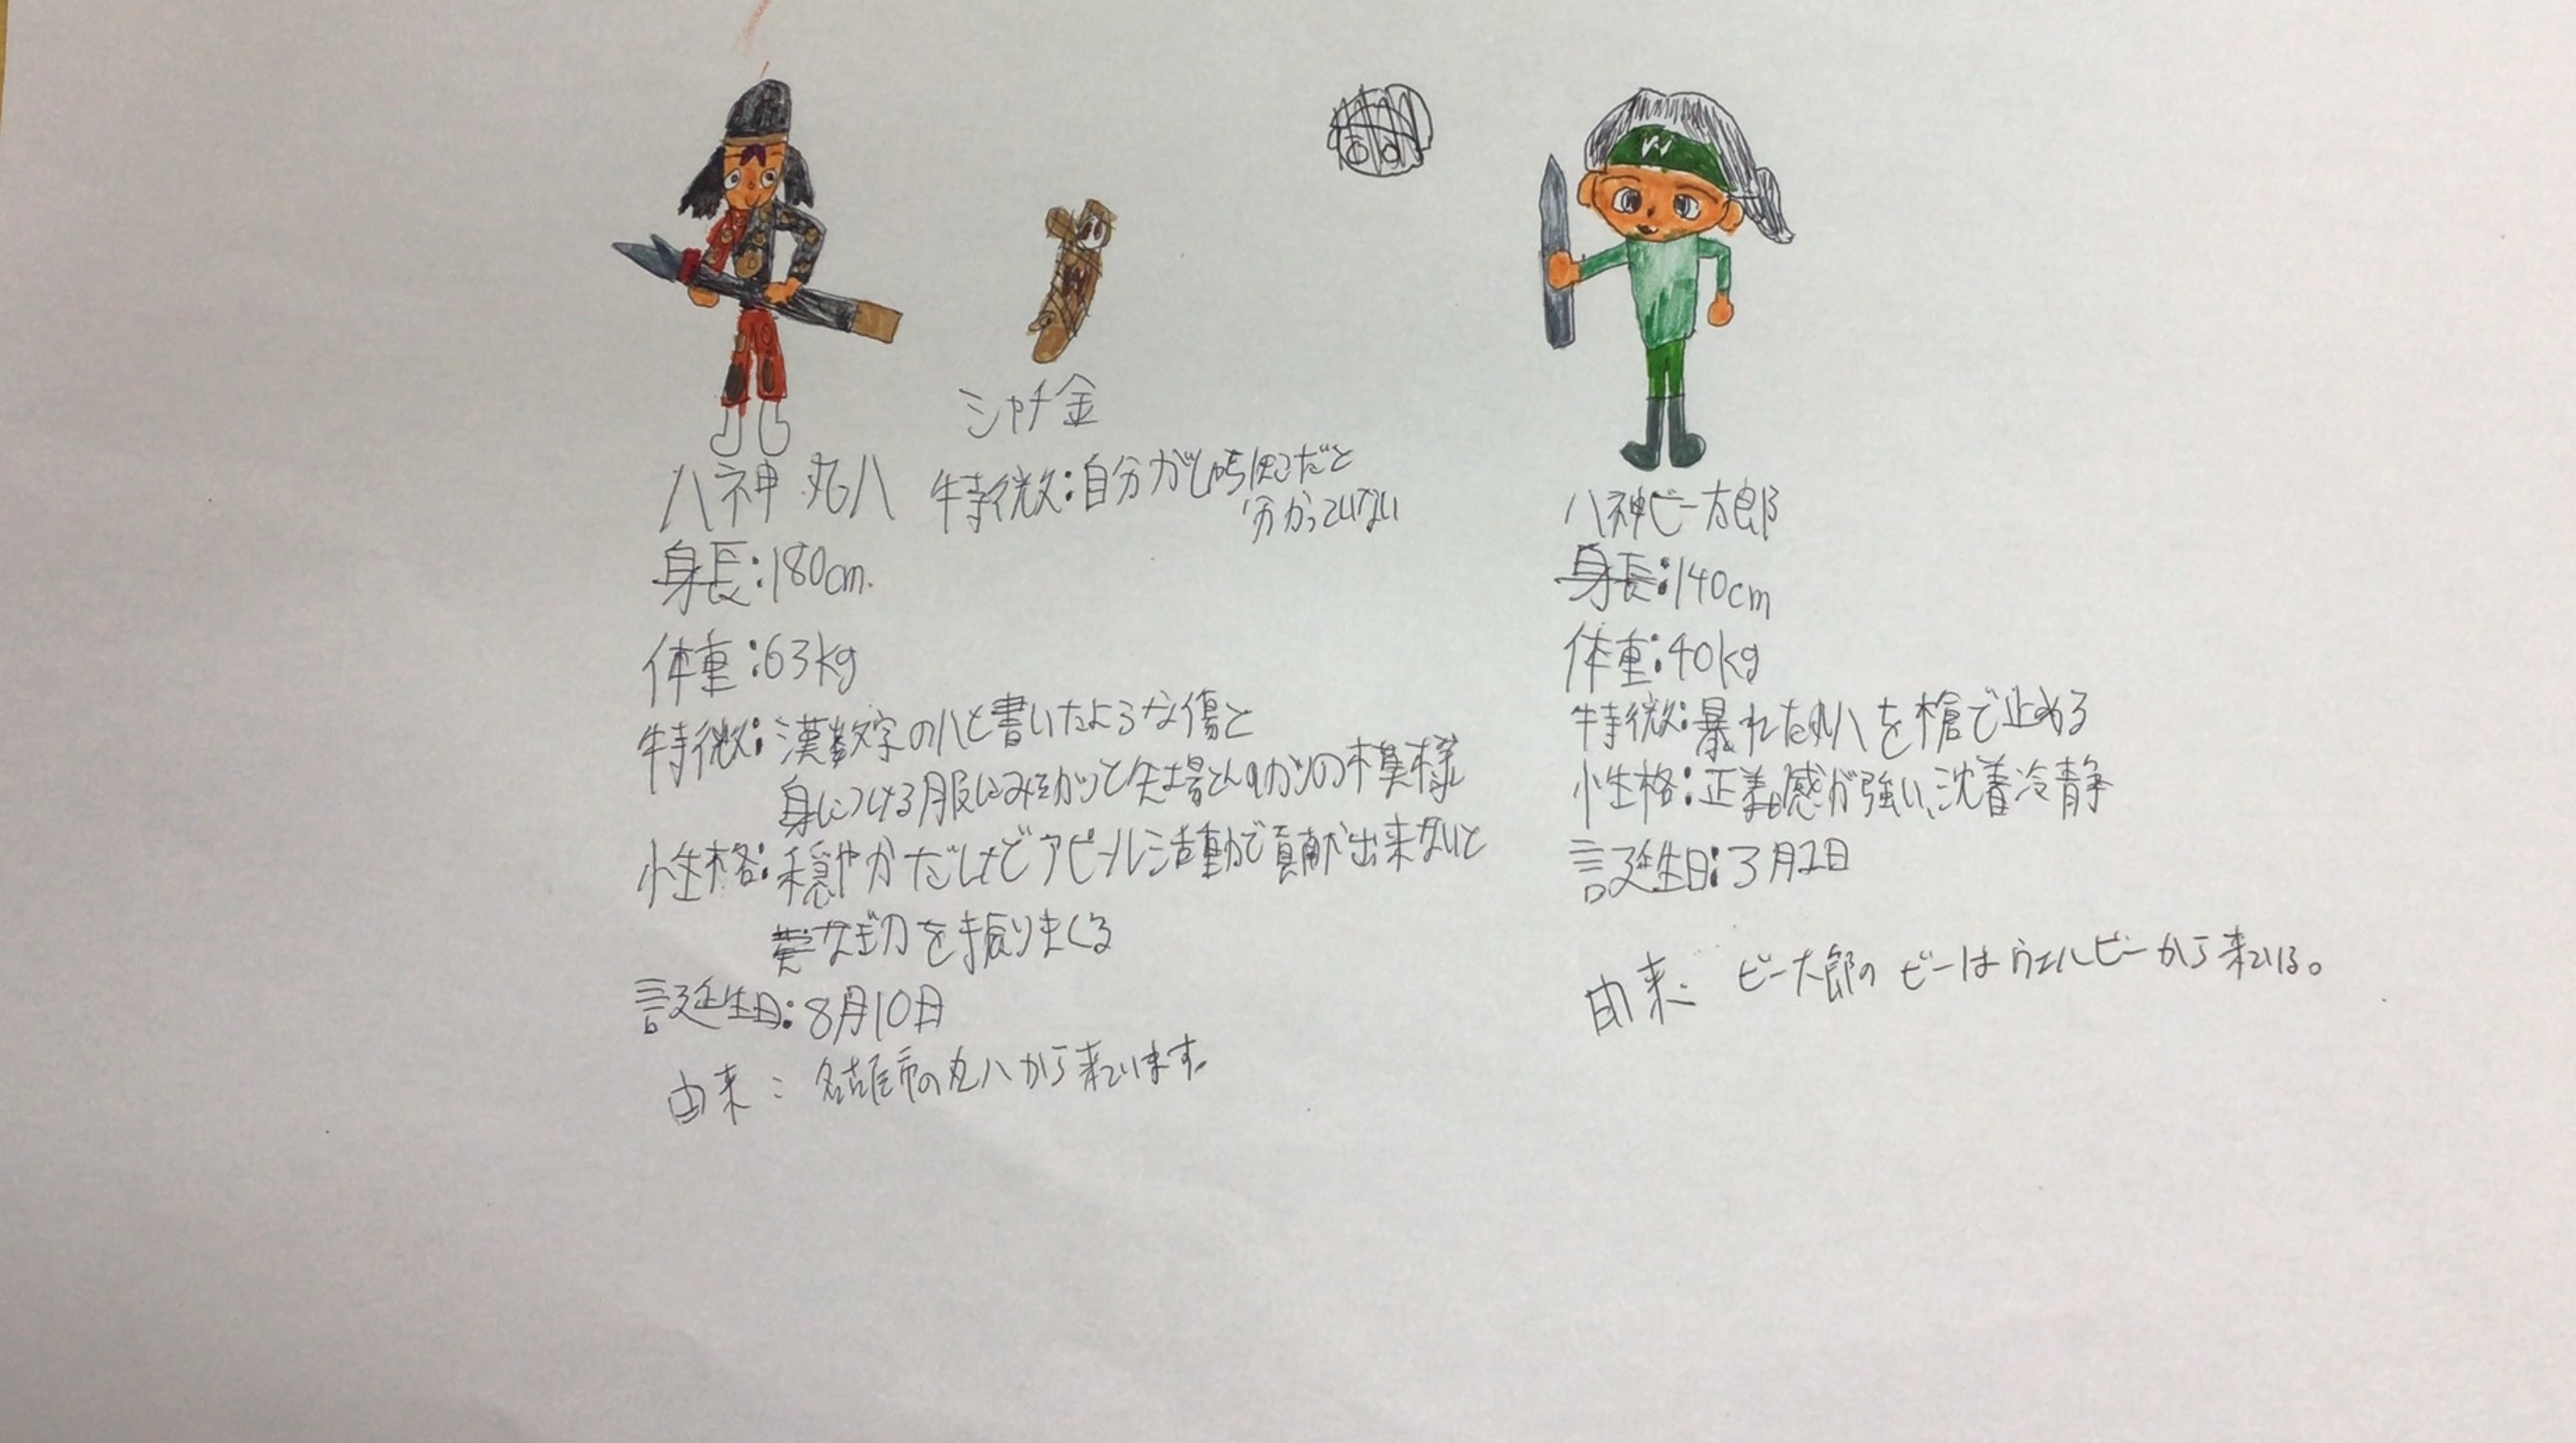 シャチ金
特徴:自分がしゃちほこだと
分かっていない
八神 丸八
身長:180cm.
体重:63kg
特徴:漢数字の八と書いたような傷と
身につける服にみそカツと矢場とんのカツの模様
性格:穏やかだけどアピール活動で貢献出来ないと
なぎ刀を振りまくる
誕生日:8月10日
由来:名古屋市の丸八から来ています。
W
八神ビー太郎
身長:140cm
体重:40kg
特徴:暴れた丸八を槍で止める
性格:正義感が強い、沈着冷静
誕生日:3月2日
由来:ビー太郎のビーはウェルビーから来ている。